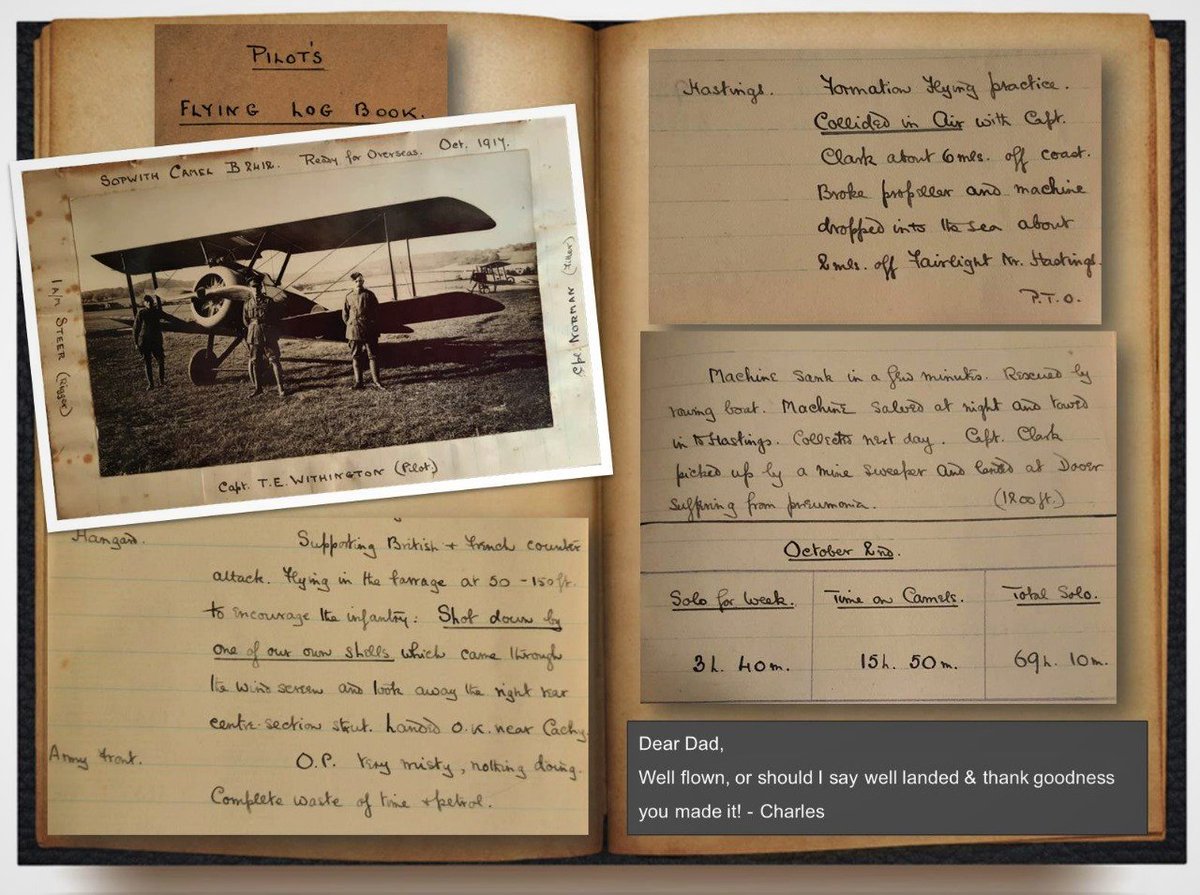 PILOT'S
FLYING LOG BOOK.
SOPWITH CAMEL B2412. READY for OVERSEAS. Oct. 1917.
1 A/M STEER (Rigger)
Cpl. NORMAN (Fitter)
Capt. T.E. WITHINGTON (Pilot)
Hangard. Supporting British + French counter
attack. Flying in the barrage at 50 - 150 ft.
to encourage the infantry: Shot down by
one of our own shells which came through
the wind screen and took away the right rear
centre-section strut. Landed O.K. near Cachy
Army Front. O.P. Very misty, nothing doing.
Complete waste of time + petrol.
Hastings. Formation Flying practice.
Collided in Air with Capt.
Clark about 6 mls. off coast.
Broke propeller and machine
dropped into the sea about
2 mls. off Fairlight Nr. Hastings.
P.T.O.
Machine sank in a few minutes. Rescued by
rowing boat. Machine salved at night and towed
in to Hastings. Collected next day. Capt. Clark
picked up by a mine sweeper and landed at Dover
suffering from pneumonia. (1200 ft.)
October 2nd.
Solo for Week. Time on Camels. Total Solo.
3h. 40m. 15h. 50m. 69h. 10m.
Dear Dad,
Well flown, or should I say well landed & thank goodness
you made it! - Charles